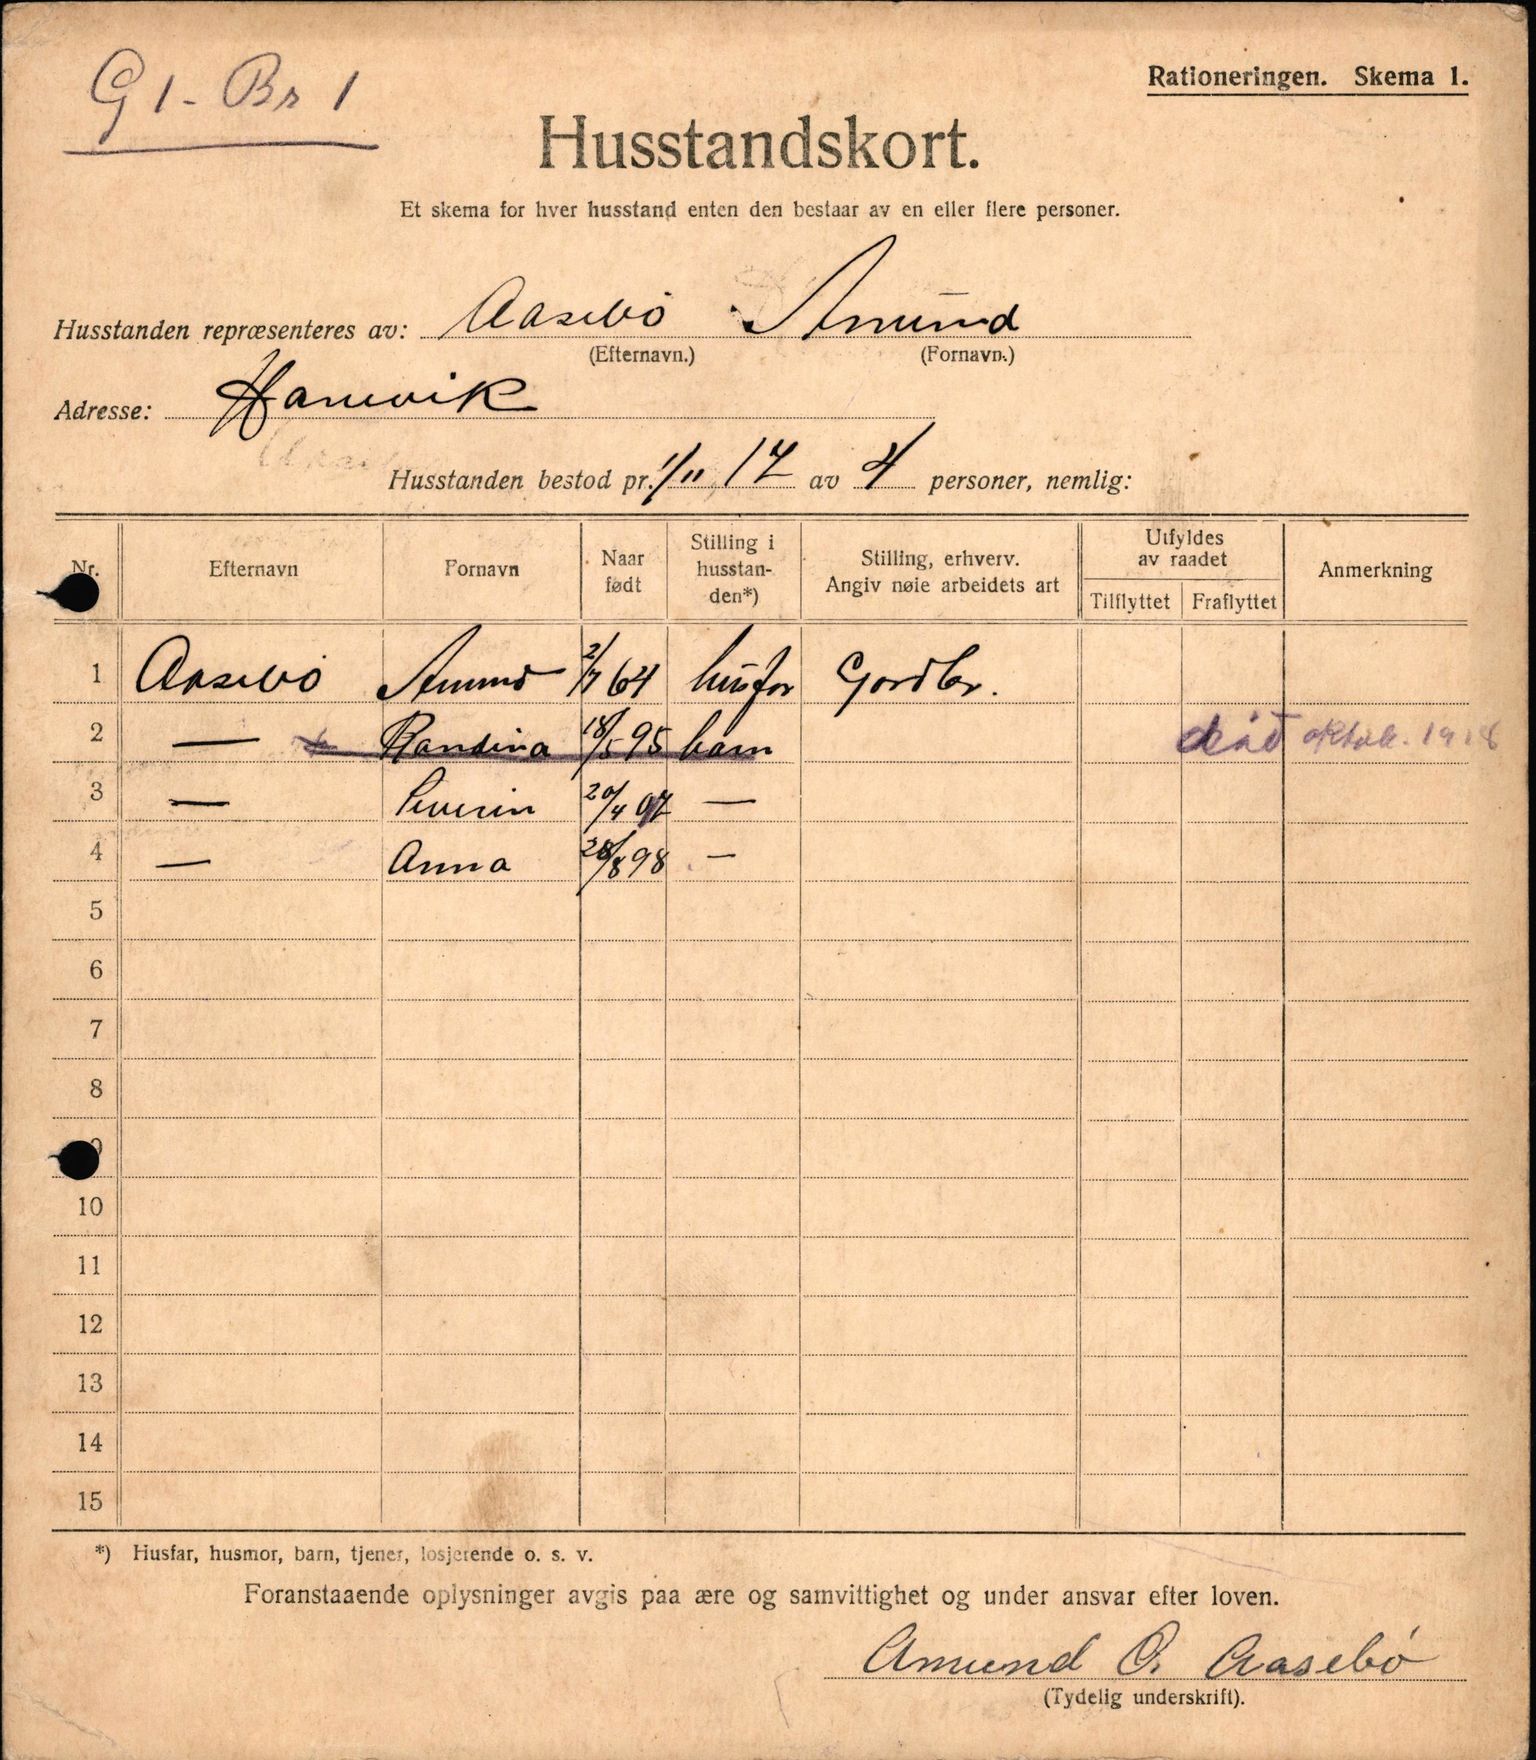 G 1 - Br 1
Rationeringen. Skema 1.
Husstandskort.
Et skema for hver husstand enten den bestaar av en eller flere personer.
Husstanden repræsenteres av: Aasebö Amund
(Efternavn.) (Fornavn.)
Adresse: Hanevik
Husstanden bestod pr. 1/11 17 av 4 personer, nemlig:
Nr. Efternavn Fornavn Naar født Stilling i husstanden*) Stilling, erhverv. Angiv nøie arbeidets art Utfyldes av raadet Tilflyttet Fraflyttet Anmerkning
1 Aasebö Amund 2/7 64 husfar Gardbr.
2 — Randina 18/5 95 barn död oktob. 1918
3 — Severin 20/4 97 —
4 — Anna 28/8 98 —
5
6
7
8
9
10
11
12
13
14
15
*) Husfar, husmor, barn, tjener, losjerende o. s. v.
Foranstaaende oplysninger avgis paa ære og samvittighet og under ansvar efter loven.
Amund O. Aasebö
(Tydelig underskrift).